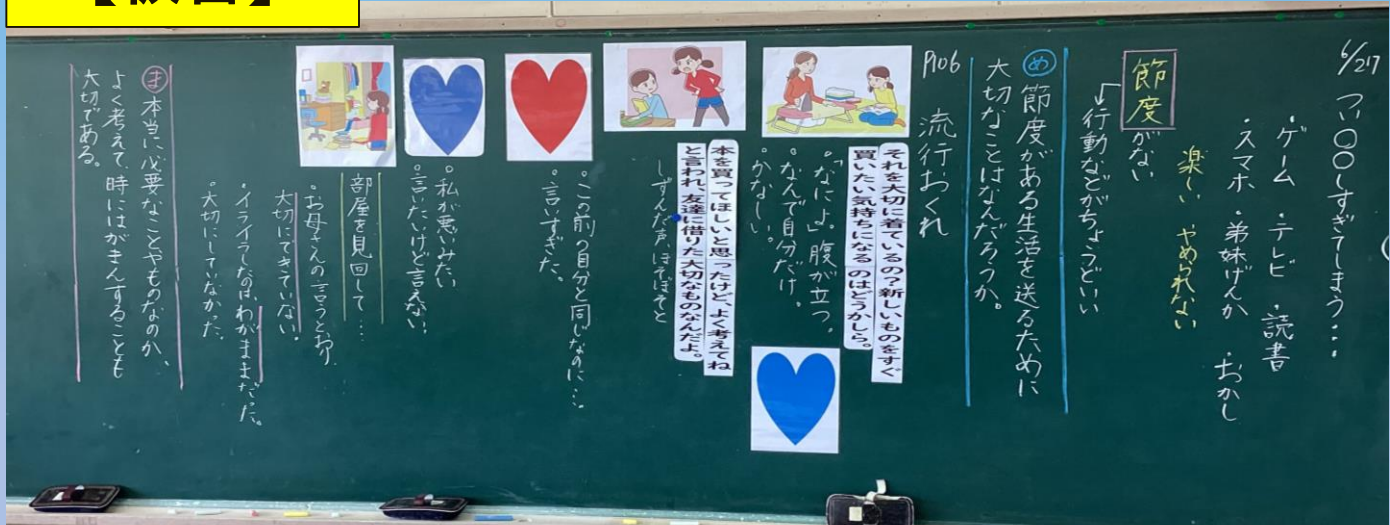 【板書】
6/27
つい○○しすぎてしまう・・・
・ゲーム ・テレビ ・読書
・スマホ ・弟妹げんか ・おかし
楽しい やめられない
節度がない
行動などがちょうどいい
め 節度がある生活を送るために
大切なことはなんだろうか。
P106 流行おくれ
それを大切に着ているの?新しいものをすぐ
買いたい気持ちになるのはどうかしら。
・「なによ」腹が立つ。
・なんで自分だけ。
・かなしい。
本を買ってほしいと思ったけど、よく考えてね
と言われ、友達に借りた大切なものなんだよ。
しずんだ声、ぼそぼそと
・この前の自分と同じなのに・・・
・言いすぎた。
・私が悪いみたい
・言いたいけど言えない。
部屋を見回して・・・
・お母さんの言うとおり
大切にできていない。
・イライラしたのは、わがままだった。
・大切にしていなかった。
ま 本当に必要なことやものなのか、
よく考えて、時にはがまんすることも
大切である。